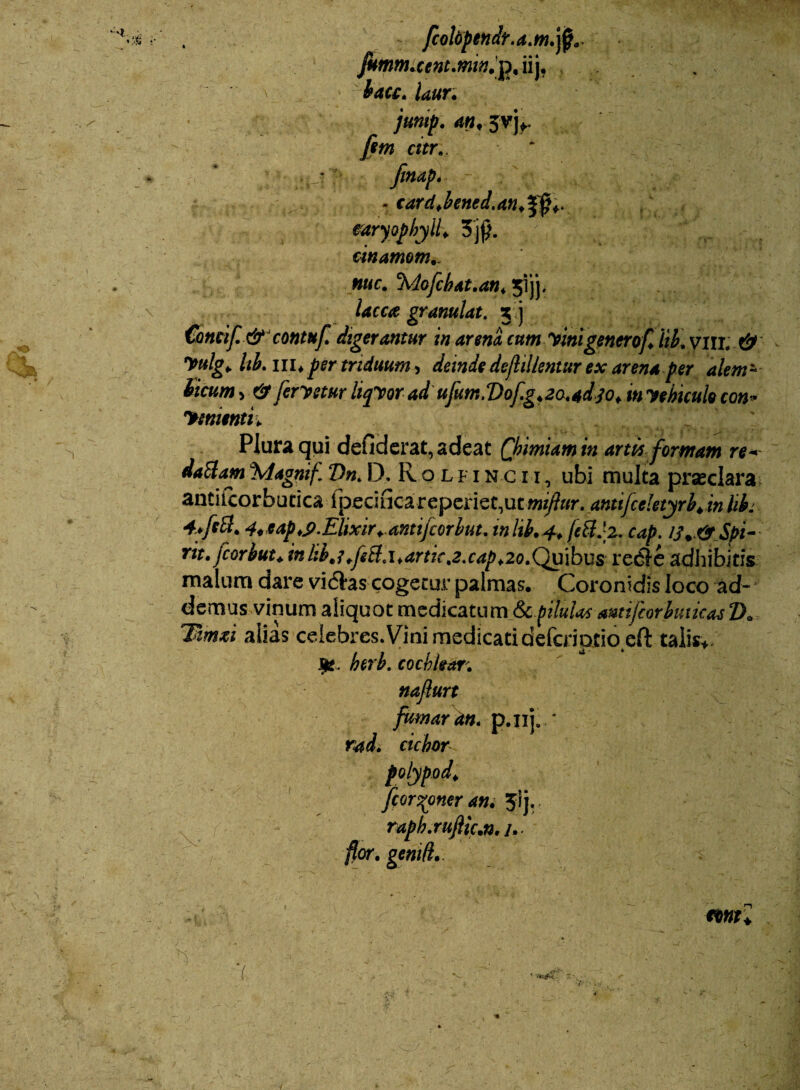 ſcolopendr.a.m.jß.
ſumm.cent.min.p.iij,
bacc. laur.
junip. an. ʒvj.
ſem citr.
ſinap.
card.bened.an.℥ß.
caryophyll. ʒjß.
cinamom.
nuc. Moſchat.an. ʒijj.
laccæ granulat. ʒj
Conciſ. & contuſ. digerantur in arenâ cum vini generoſ. lib. VIII. &
vulg. lib. III. per triduum, deinde deſtillentur ex arena per alem-
bicum, & ſervetur liqvor ad uſum. Doſ.g.20.ad 30. in vehiculo con-
venienti.
Plura qui deſiderat, adeat Chimiam in artis formam re-
dactam Magnif. Dn. D. ROLFINCII, ubi multa præclara
antiſcorbutica ſpecifica reperiet, ut miſtur. antiſceletyrb. in lib.
4. ſect. 4. cap. 9. Elixir. antiſcorbut. in lib. 4. ſect. 2. cap. 13. & Spi-
rit. ſcorbut. in lib. ?. ſect. 1. artic. 2. cap. 20. Quibus rectè adhibitis
malum dare victas cogetur palmas. Coronidis loco ad-
demus vinum aliquot medicatum & pilulas antiſcorbuticas D.
Timæi aliàs celebres. Vini medicati deſcriptio eſt talis.
℞. herb. cochlear.
naſturt
fumar an. p.iij.
rad. cichor
polypod.
ſcorzoner an. ʒij.
raph.ruſtic.n. 1.
flor. geniſt.
cent.